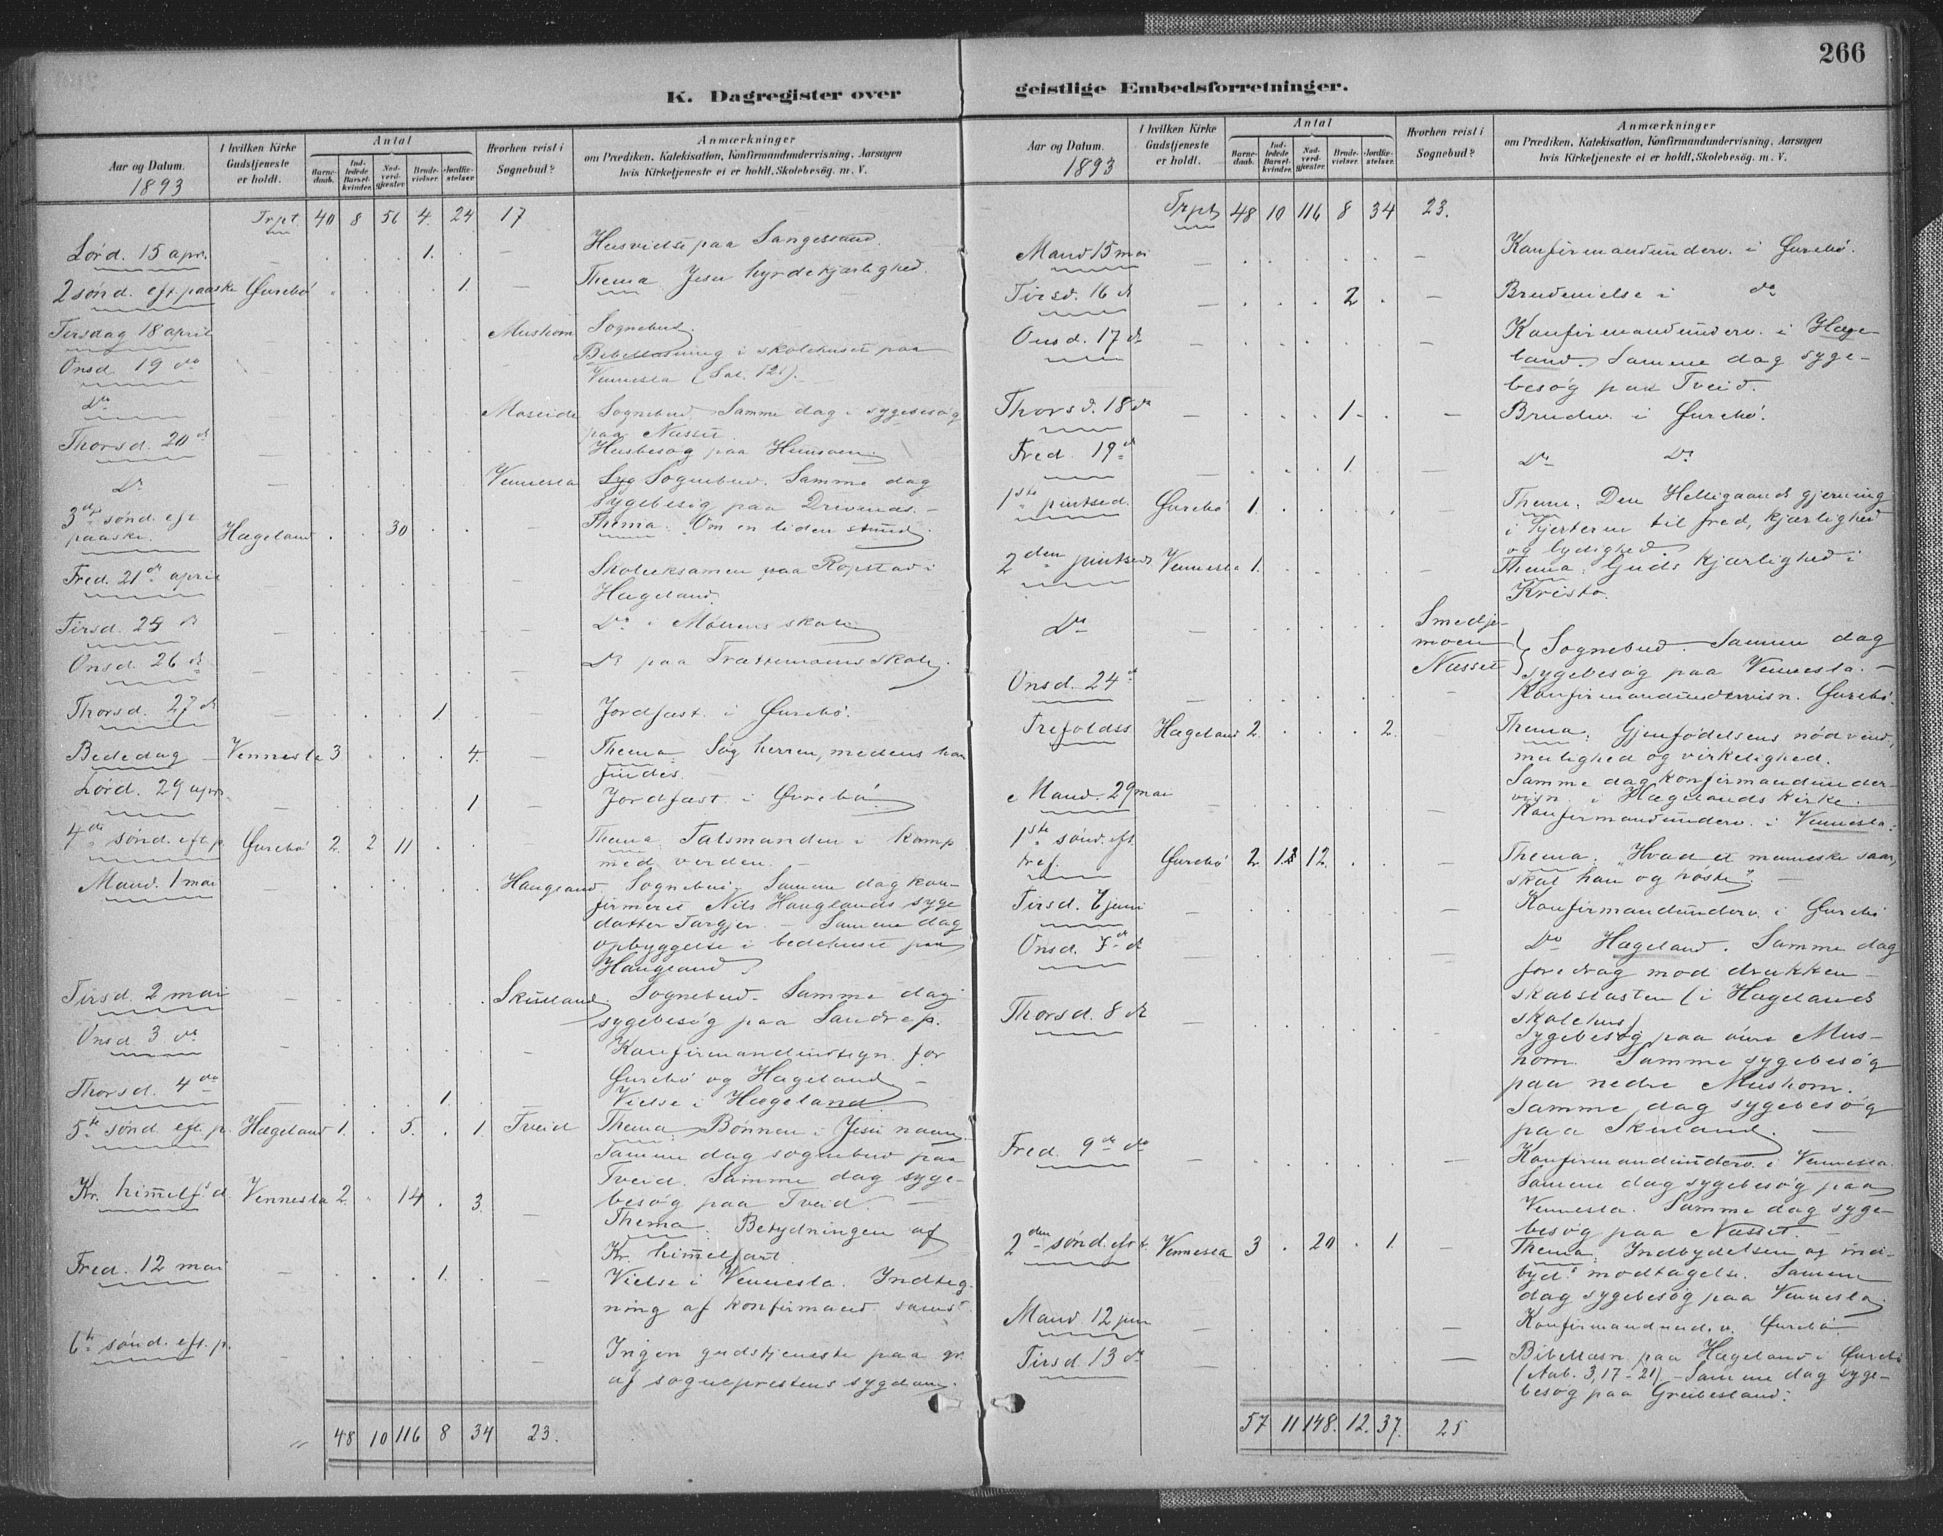 266
K. Dagregister over geistlige Embedsforretninger.
Aar og Datum. 1893
I hvilken Kirke Gudstjeneste er holdt.
Antal
Barnedaab.
Indledede Barselkvinder.
Nadverdgjester.
Brudevielser.
Jordfæstelser.
Hvorhen reist i Sognebud?
Anmærkninger
om Prædiken, Katekisation, Konfirmandundervisning, Aarsagen
hvis Kirketjeneste ei er holdt, Skolebesøg, m. V.
Trpt 40 8 56 4. 24 17
Lørd. 15 apr. 1. Husvielse paa Langessand.
2 sønd. eft. paaske Øvrebø 1. Thema. Jesu hyrdekjærlighed.
Tirsdag 18 april Mushom Sognebud.
Onsd 19 do Bibellæsning i skolehuset paa
Vennesla (Sal. 121).
Do Moseide Sognebud. Samme dag i sygebesøg
paa Næsset.
Thorsd. 20 d Husbesøg paa Hunsøen.
Do Vennesla Syg Sognebud. Samme dag
sygebesøg paa Drivenes. –
3die sønd. eft paaske. Hægeland 30 Thema: Om en liden stund.
Fred. 21 de april Skoleeksamen paa Ropstad i
Hægeland.
Tirsd. 25 d Do i Mølens skole
Onsd. 26 d Do paa Trættemoens skole.
Thorsd. 27 d 1 Jordfæst. i Øvrebø.
Bededag Vennesla 3 4. Thema: Søg herren, medens han
findes.
Lørd. 29 apr. 1 Jordfæst. i Øvrebø
4de sønd. eft. p. Øvrebø 2. 2 11 Thema: Talsmanden i kamp
med verden. –
Mand. 1 mai Haugland Sognebud. Samme dag kon-
firmeret Nils Hauglands syge
datter Targjer. – Samme dag
opbyggelse i bedehuset paa
Haugland.
Tirsd. 2 mai Skusland Sognebud. Samme dag
sygebesøg paa Sandrip.
Onsd 3 do Konfirmandindtegn. for
Øvrebø og Hægeland –
Thorsd. 4 do 1. Vielse i Hægeland.
5te sønd eft. p. Hægeland 1. 5. 1. Tveid Thema: Bønnen i Jesu navn.
Samme dag sognebud paa
Tveid. Samme dag syge-
besøg paa Tveid. –
Kr. himmelf.d Vennesla 2. 14 3. Thema: Betydningen af
Kr. himmelfart.
Fred. 12 mai 1. Vielse i Vennesla. Indteg-
ning af konfirmand. samst.
6te sønd. eft. p. Ingen gudstjeneste paa gr.
af sogneprestens sygdom.
48 10 116 8 34 23.
Aar og Datum. 1893
I hvilken Kirke Gudstjeneste er holdt.
Antal
Barnedaab.
Indledede Barselkvinder.
Nadverdgjester.
Brudevielser.
Jordfæstelser.
Hvorhen reist i Sognebud?
Anmærkninger
om Prædiken, Katekisation, Konfirmandundervisning, Aarsagen
hvis Kirketjeneste ei er holdt, Skolebesøg, m. V.
Trpt 48 10 116 8 34 23.
Mand 15 mai Konfirmandunderv. i Øvrebø.
Tirsd. 16 d 2 Brudevielse i do
Onsd. 17 d Konfirmandunderv. i Hæge-
land. Samme dag syge-
besøg paa Tveid.
Thorsd. 18 do 1. Brudev. i Øvrebø.
Fred. 19 d 1. Do Do
1ste pintsed. Øvrebø 1. Thema. Den Helligaands gjerning
i hjerterne til fred, kjærlighed
og lydighed.
2den pintsed Vennesla 1. Thema: Guds kjærlighed i
Kristo.
Do Smedje-
moen
Næsset } Sognebud. Samme dag
sygebesøg paa Vennesla. –
Onsd. 24 d Konfirmandundervisn. Øvrebø.
Trefoldss Hægeland 2. 2. Thema: Gjenfødelsens nødvend,
mulighed og virkelighed.
Samme dag konfirmandunder-
visn. i Hægelands kirke.
Mand. 29 mai Konfirmandunderv. i Vennesla.
1ste sønd. eft tref. Øvrebø 2 1 12. Thema: "Hvad et menneske saar,
skal han og høste". –
Tirsd. 6 juni Konfirmandunderv. i Øvrebø
Onsd. 7 de d Do Hægeland. Samme dag
foredrag mod drukken-
skabslasten (i Hægelands
skolehus)
Thorsd. 8 d Sygebesøg paa øvre Mus-
hom. Samme sygebesøg
paa nedre Mushom.
Samme dag sygebesøg
paa Skuland. –
Fred. 9 de do Konfirmandunderv. i Vennesla.
Samme dag sygebesøg paa
Vennesla. Samme dag syge-
besøg paa Næsset. –
2den sønd. eft t. Vennesla 3 20 1. Thema: Indbydelsen og ind-
byds modtagelse. Samme
dag sygebesøg paa Vennesla.
Mand. 12 jun Konfirmandund.v. Øvrebø
Tirsd. 13 d Bibellæsn. paa Hægeland i Øvrebø
(Aab. 3, 17–21) – Samme dag syge-
besøg paa Greibesland.
57 11 148. 12. 37. 25